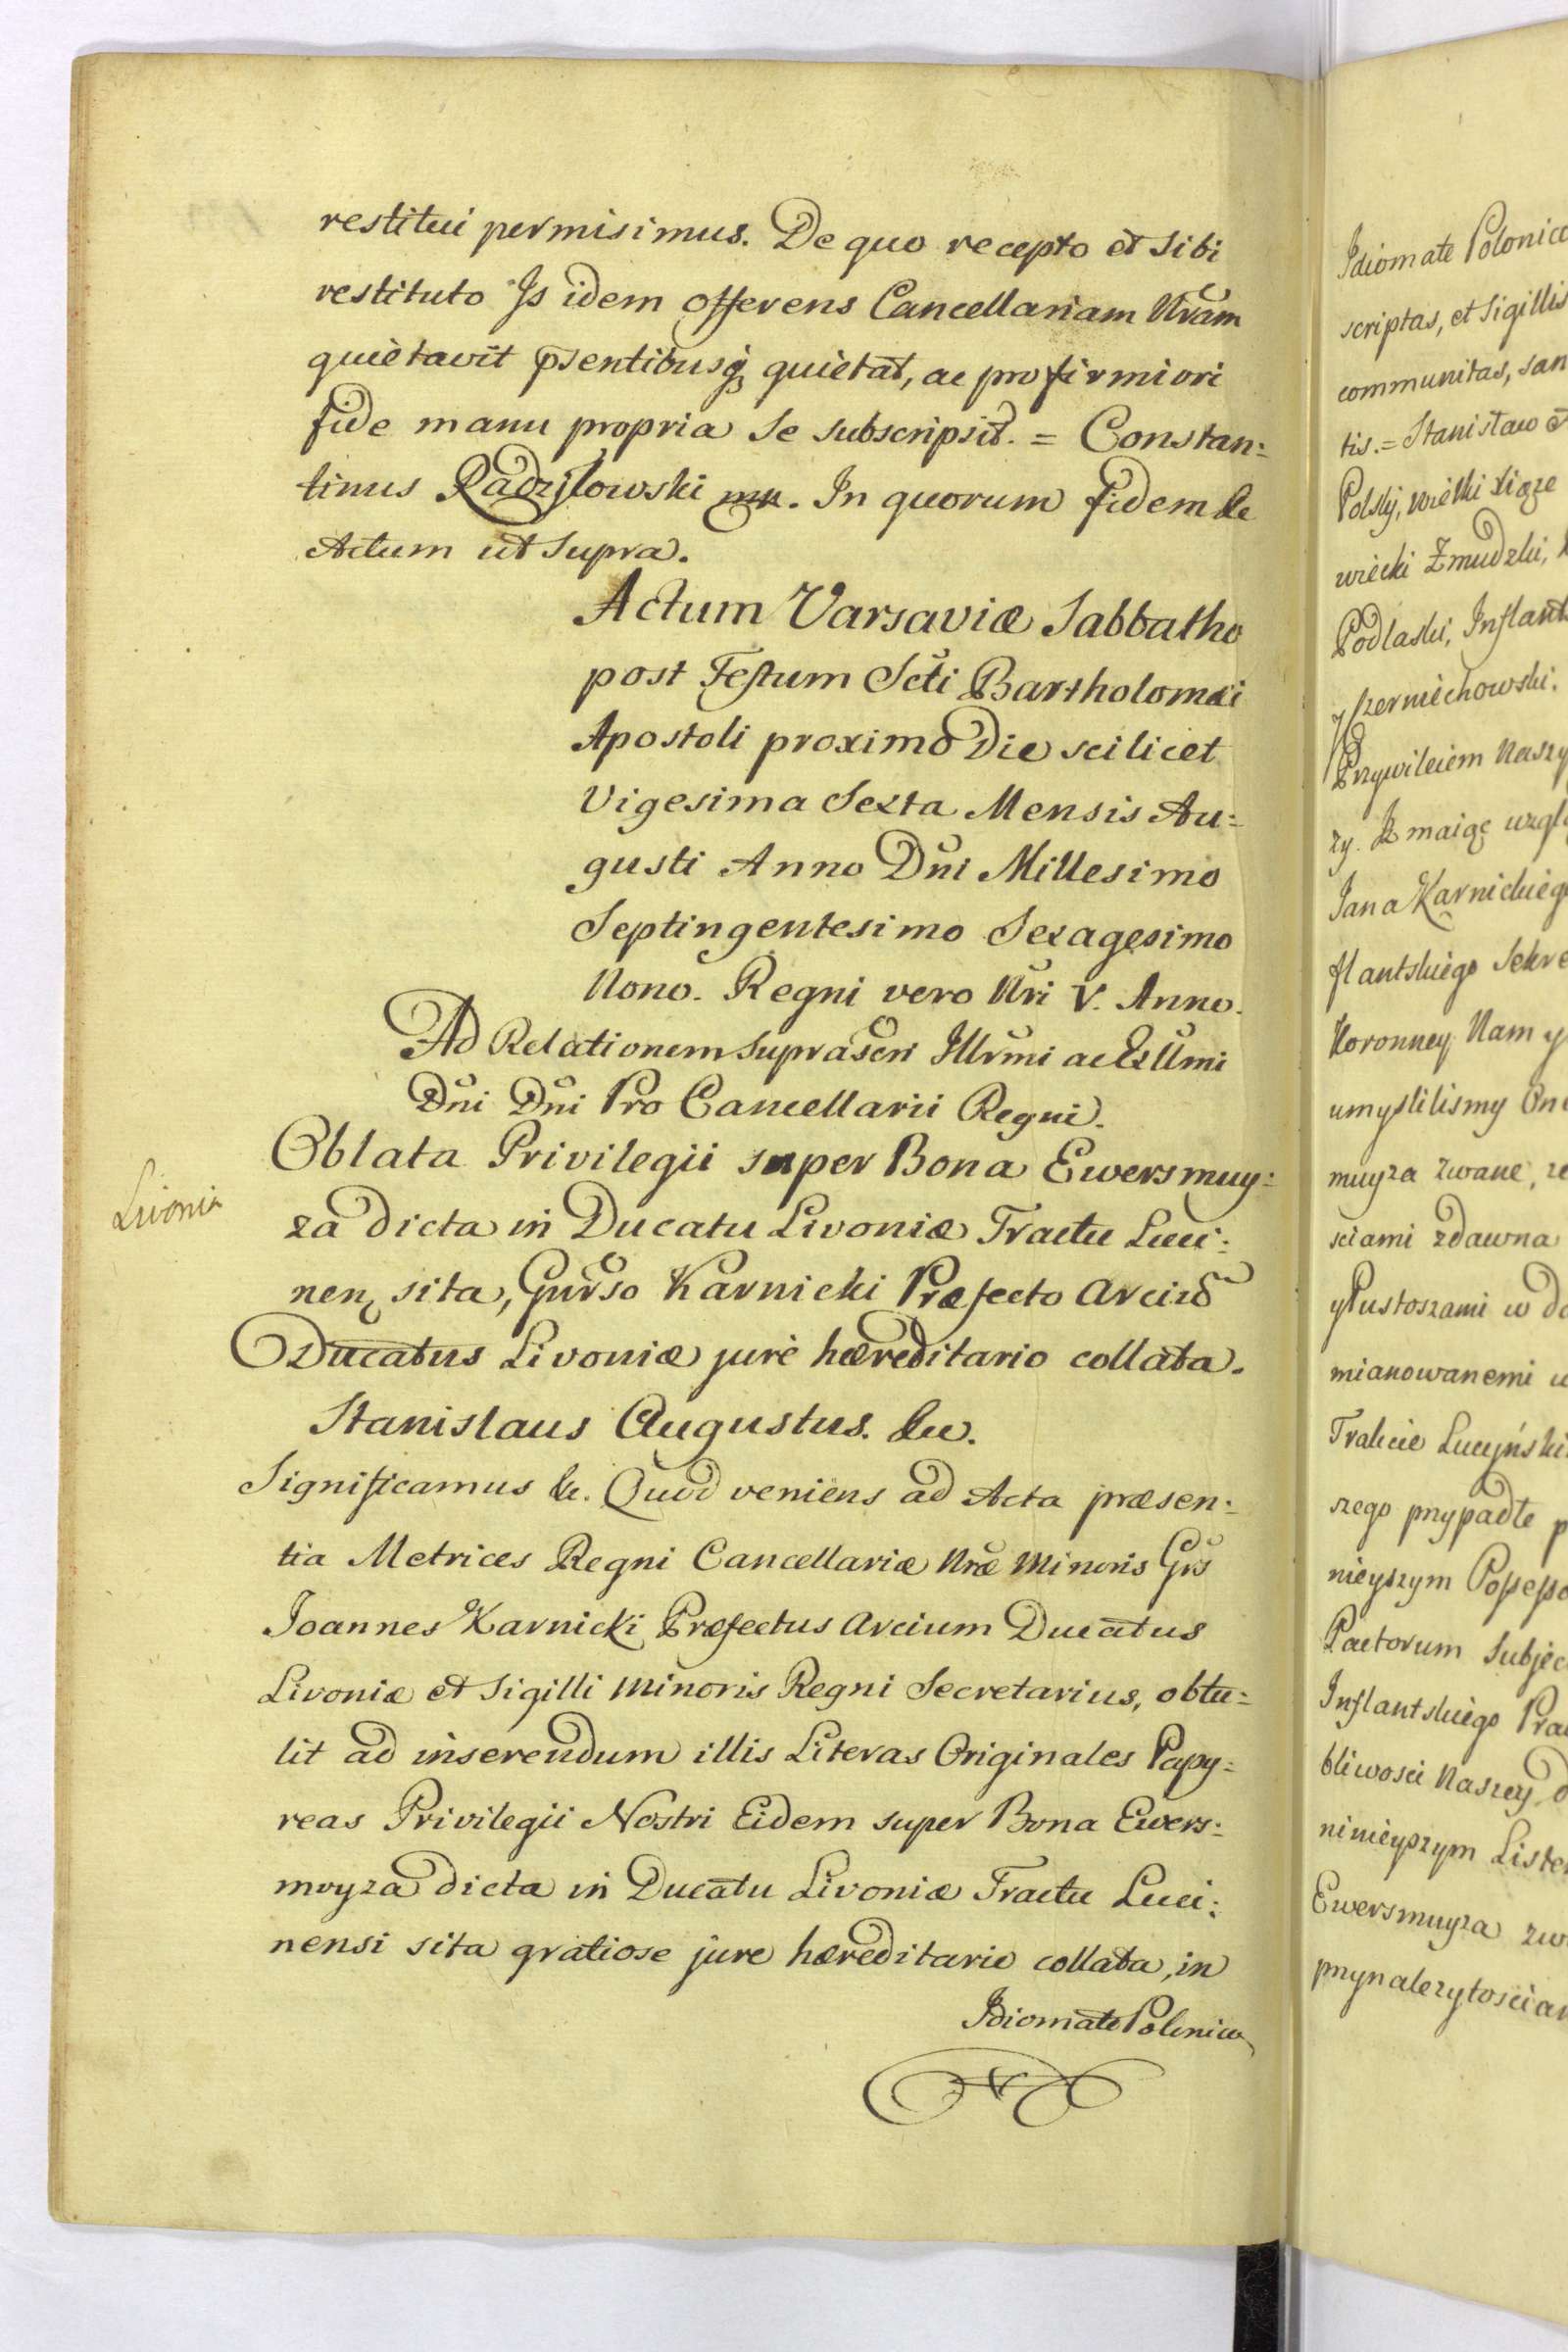 restitui permisimus. De quo recepto et Sibi
restituto Is idem offerens Cancellariam Nram
quietavit psentibusq quietat, ac pro firmiori
fide manu propria Se subscripsit. = Constan:
tinus Radziłowski mp. In quorum fidem &c
Actum ut Supra.
Actum Varsaviæ Sabbatho
post Festum Scti Bartholomæi
Apostoli proximo Die scilicet
Vigesima Sexta Mensis Au:
gusti Anno Dni Millesimo
Septingentesimo Sexagesimo
Nono. Regni vero Nri V. Anno.
Ad Relationem Suprascri Illrmi ac Exllmi
Dni Dni Pro Cancellarii Regni.
Oblata Privilegii super Bona Ewersmuy:
Livonia
za dicta in Ducatu Livoniæ Tractu Luci:
nen sita, Gnrso Karnicki Præfecto Arciu
Ducatus Livoniæ jure hæreditario collata.
Stanislaus Augustus. &c.
Significamus &c. Quod veniens ad Acta præsen:
tia Metrices Regni Cancellariæ Nræ Minoris Grs
Joannes Karnicki Præfectus Arcium Ducatus
Livoniæ et Sigilli Minoris Regni Secretarius, obtu:
lit ad inserendum illis Literas Originales Papy:
reas Privilegii Nostri Eidem super Bona Ewers:
muyza dicta in Ducatu Livoniæ Tractu Luci:
nensi sita gratiose jure hæreditario collata, in
Idiomate Polonico
Idiomate Polonico
scriptas, et Sigillis
communitas, san
tis. = Stanisław
Polski, wielki Xiąze
wiecki Zmudzki,
Podlaski, Inflant
Czerniechowski.
Przywileiem Naszy
zy. Iz maiąc wzglę
Jana Karnickiego
flantskiego Sekre
Koronney Nam y
umyslilismy One
muyza zwane, ze
sciami zdawna
y Pustoszami w do
mianowanemi w
Trakcie Lucyński
szego przypadłe p
nieyszym Possesso
Pactorum Subjec
Inflantskiego Pra
bliwosci Naszey d
ninieyszym Liste
Ewersmuyza zw
przynalezytoscia